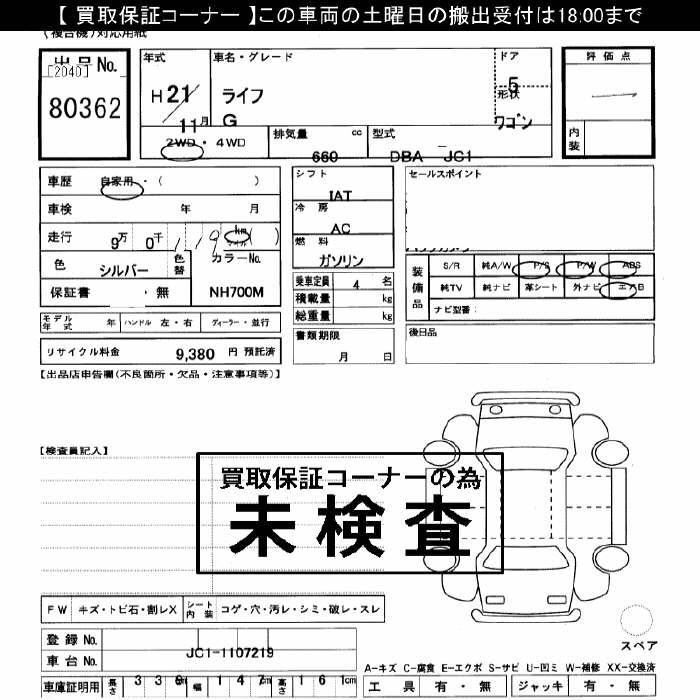 【 買取保証コーナー 】この車両の土曜日の搬出受付は18:00まで
(複合機)対応用紙
出品No.
[2040]
80362
年式
H 21
11月
車名・グレード
ライフ
G
ドア
5
形状
ワゴン
2WD・4WD
排気量 cc
660
型式
DBA JC1
評価点
内装
車歴 自家用・( )
車検 年 月
走行 9万 0千 1 1 9 km マイル ( )
色 シルバー
色替
カラーNo.
NH700M
保証書 ・ 無
シフト
IAT
冷房
AC
燃料
ガソリン
乗車定員 4 名
積載量 kg
総重量 kg
セールスポイント
装備品
S/R 純A/W P/S P/W ABS
純TV 純ナビ 革シート 外ナビ エアB
ナビ型番:
モデル年式 年 ハンドル 左・右 ディーラー・並行
リサイクル料金 9,380 円 預託済
書類期限
月 日
後日品
【出品店申告欄(不良箇所・欠品・注意事項等)】
【検査員記入】
買取保証コーナーの為
未検査
FW キズ・トビ石・割レX
シート内装 コゲ・穴・汚レ・シミ・破レ・スレ
登録No.
車台No. JC1-1107219
車庫証明用 長さ 339cm 幅 147cm 高さ 161cm
スペア
A-キズ C-腐食 E-エクボ S-サビ U-凹ミ W-補修 XX-交換済
工具 有・無 ジャッキ 有・無